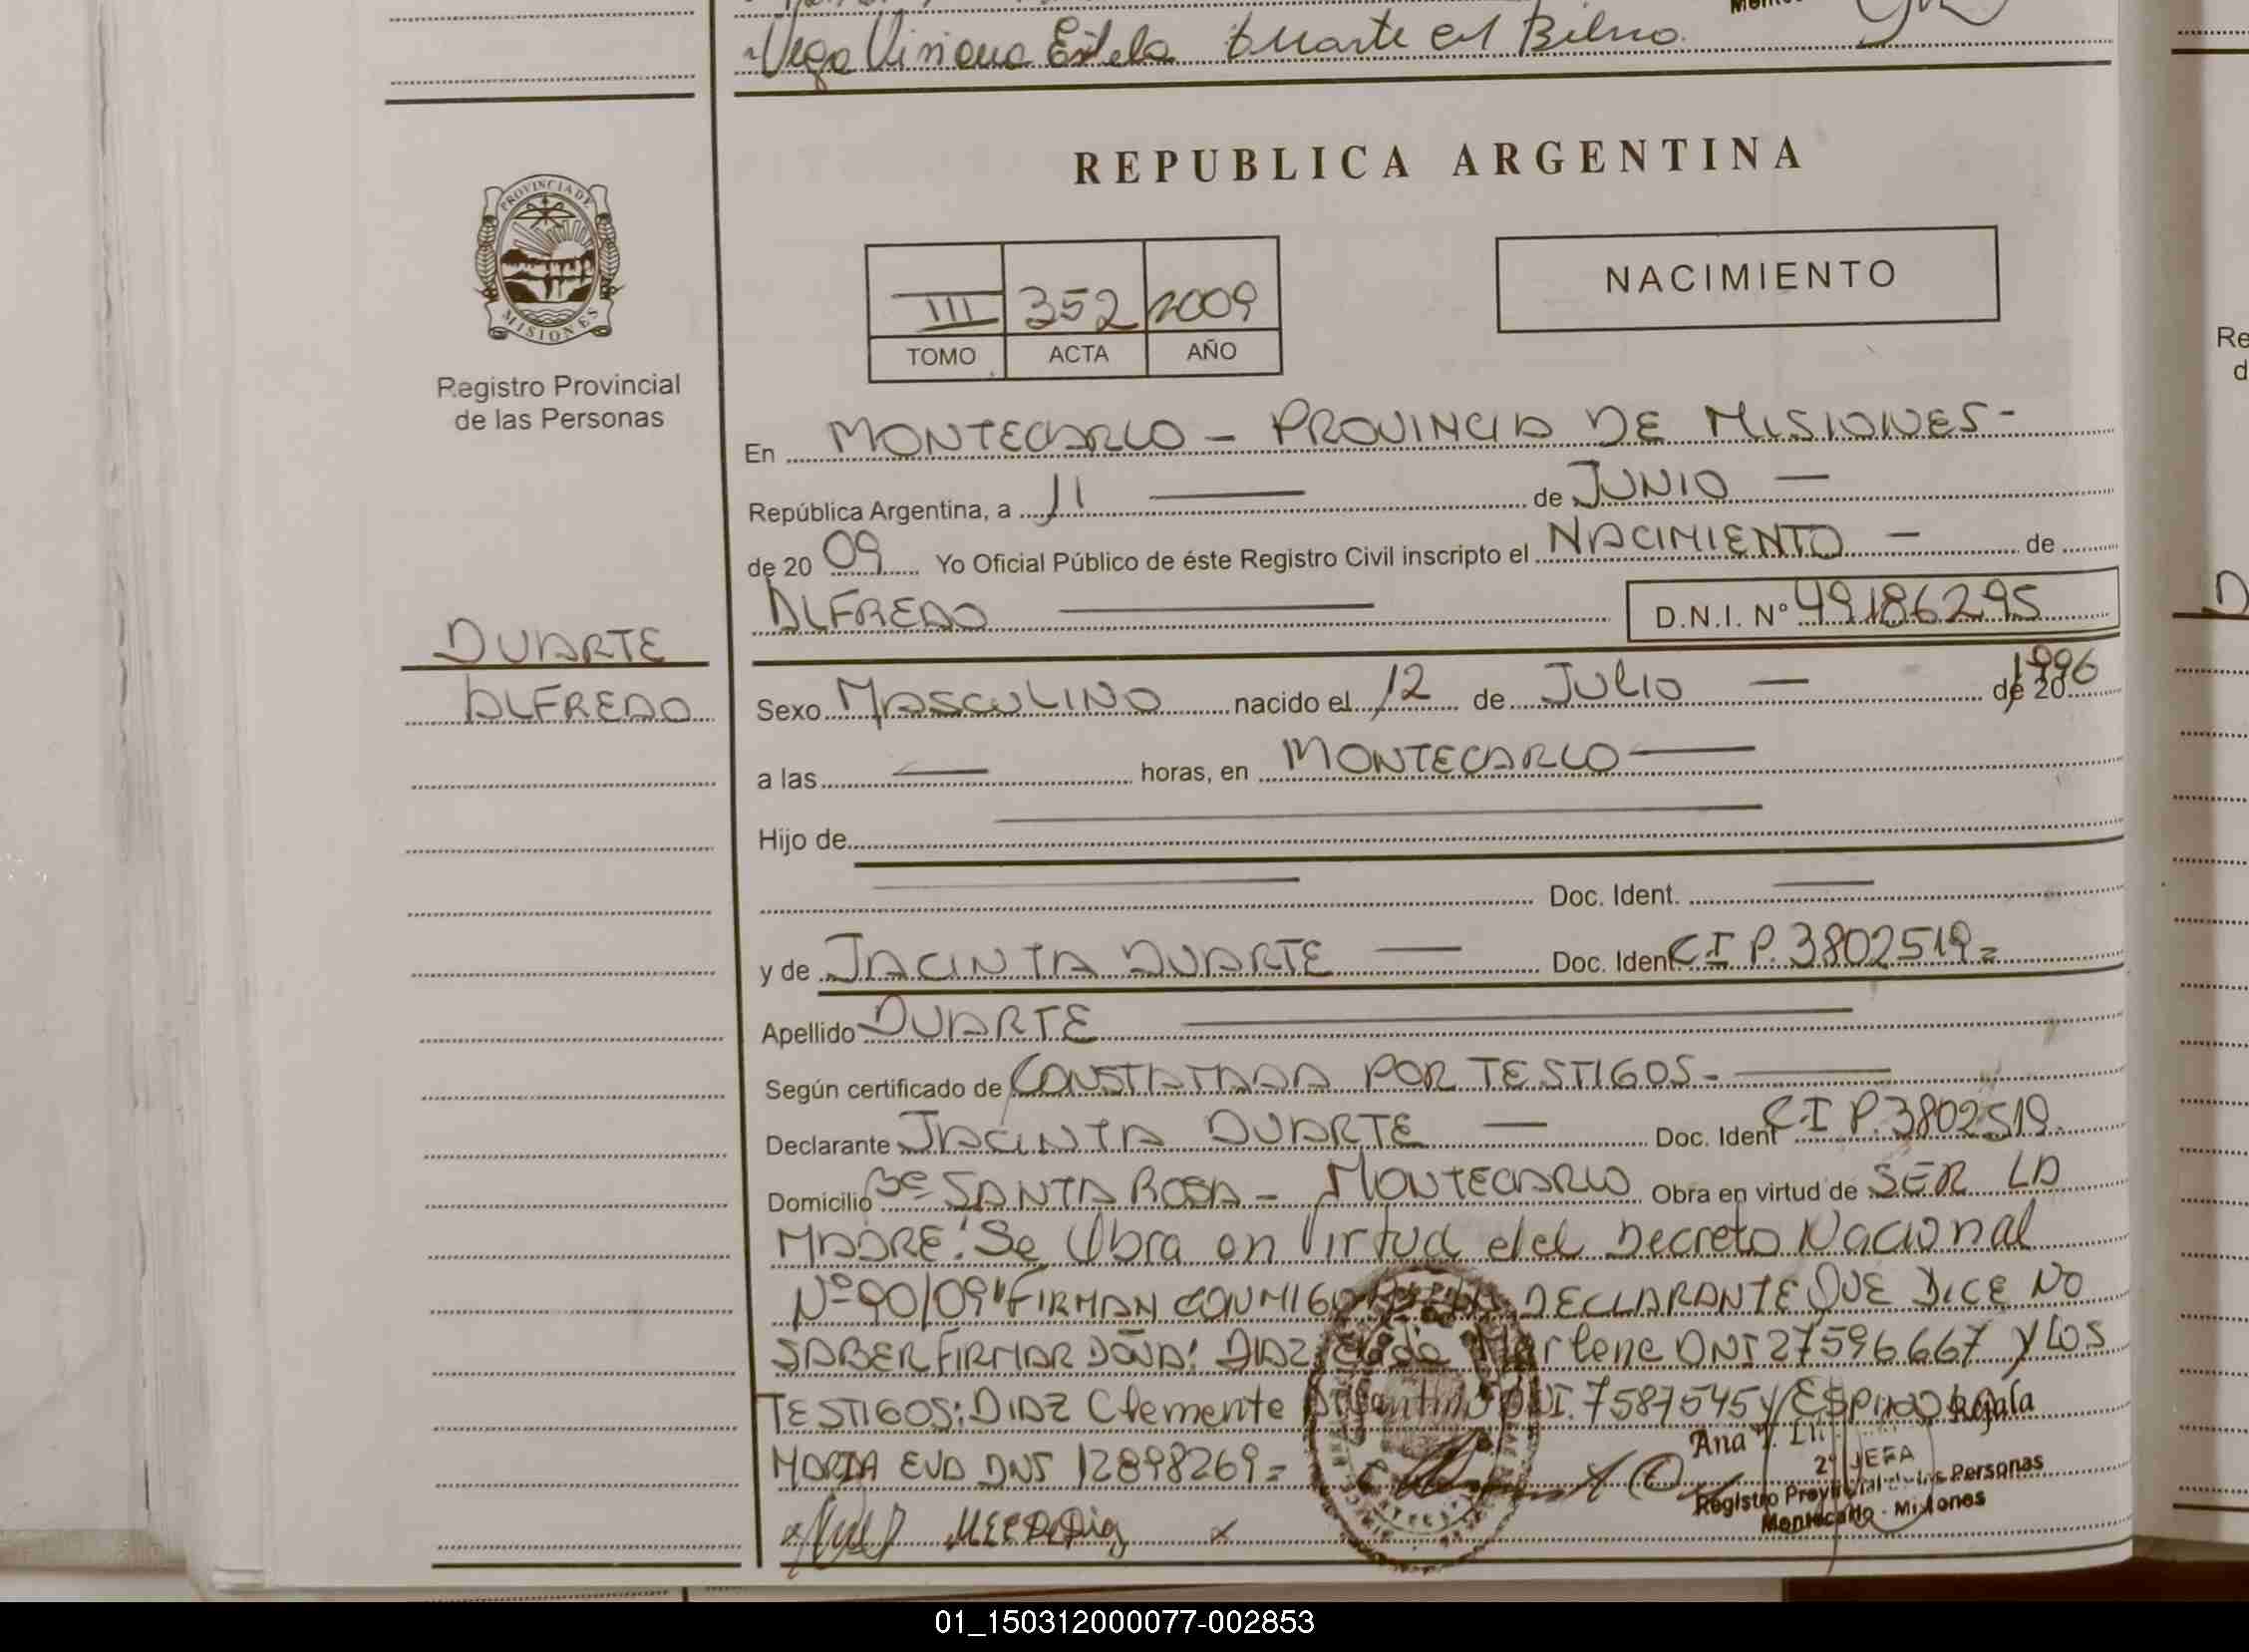 Vega Viviana Estela Duarte en Belno.
REPUBLICA ARGENTINA
PROVINCIA DE
MISIONES
Registro Provincial
de las Personas
III 352 2009
TOMO ACTA AÑO
NACIMIENTO
En MONTECARLO - PROVINCIA DE MISIONES-
República Argentina, a 11 — de JUNIO —
de 20 09 Yo Oficial Público de éste Registro Civil inscripto el NACIMIENTO — de
ALFREDO — D.N.I. Nº 49186295
DUARTE
ALFREDO
Sexo MASCULINO nacido el 12 de JULIO — de 20 1996
a las — horas, en MONTECARLO —
Hijo de —
— Doc. Ident. —
y de JACINTA DUARTE — Doc. Ident. C I P. 3802519=
Apellido DUARTE —
Según certificado de CONSTATADA POR TESTIGOS- —
Declarante JACINTA DUARTE — Doc. Ident C I P. 3802519.
Domicilio Bº SANTA ROSA - MONTECARLO Obra en virtud de SER LA
MADRE. "Se Obra en Virtud del Decreto Nacional
Nº 90/09" FIRMAN CONMIGO DECLARANTE QUE DICE NO
SABER FIRMAR DOÑA: DIAZ Marlene DNI 27596667 Y LOS
TESTIGOS: DIAZ Clemente DNI. 7587545 Y ESPINO
MARIA EVA DNI 12898269=
Ana
2º JEFA
Registro Provincial de las Personas
Montecarlo - Misiones
Re
d
D
01_150312000077-002853